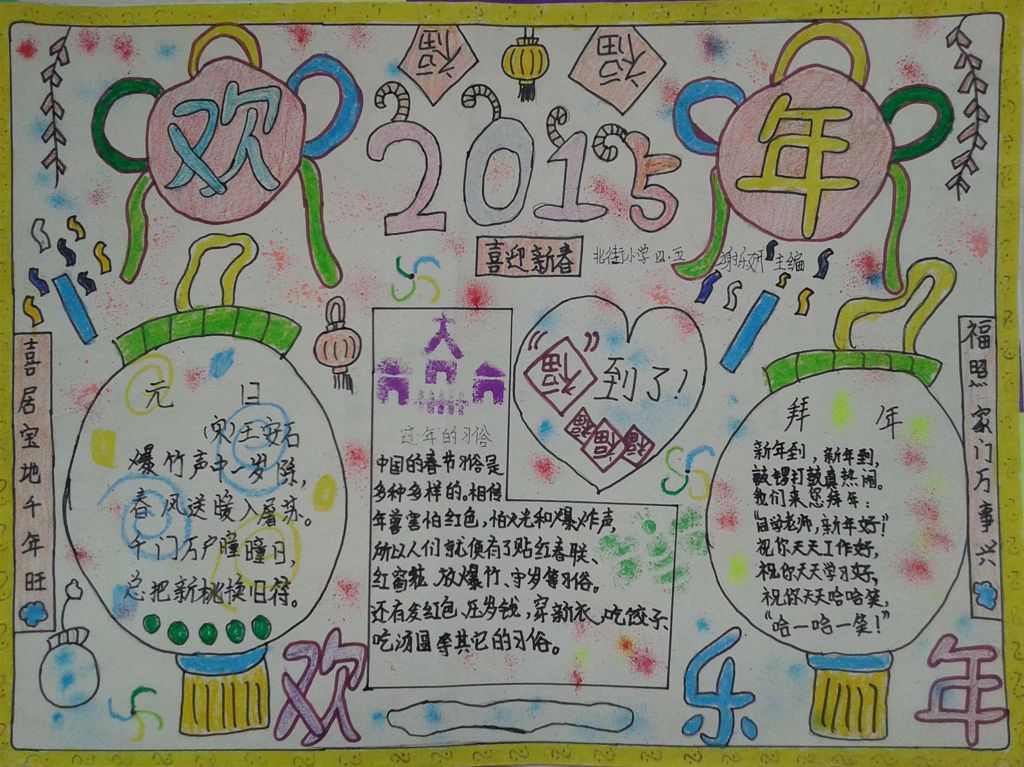 福 福
欢 2015 年
喜迎新春 北街小学四.五 主编
喜居宝地千年旺
元 日
(宋)王安石
爆竹声中一岁除,
春风送暖入屠苏。
千门万户瞳瞳日,
总把新桃换旧符。
过年的习俗
中国的春节习俗是
多种多样的。相传
年兽害怕红色,怕火光和爆炸声,
所以人们就便有了贴红春联、
红窗花、放爆竹、守岁等习俗。
还有发红包、压岁钱,穿新衣、吃饺子、
吃汤圆等其它的习俗。
“福”到了!
福 福 福
拜 年
新年到,新年到,
敲锣打鼓真热闹。
我们来您拜年:
老师,新年好!”
祝你天天工作好,
祝你天天学习好,
祝你天天哈哈笑,
“哈一哈一笑!”
福照家门万事兴
欢 乐 年